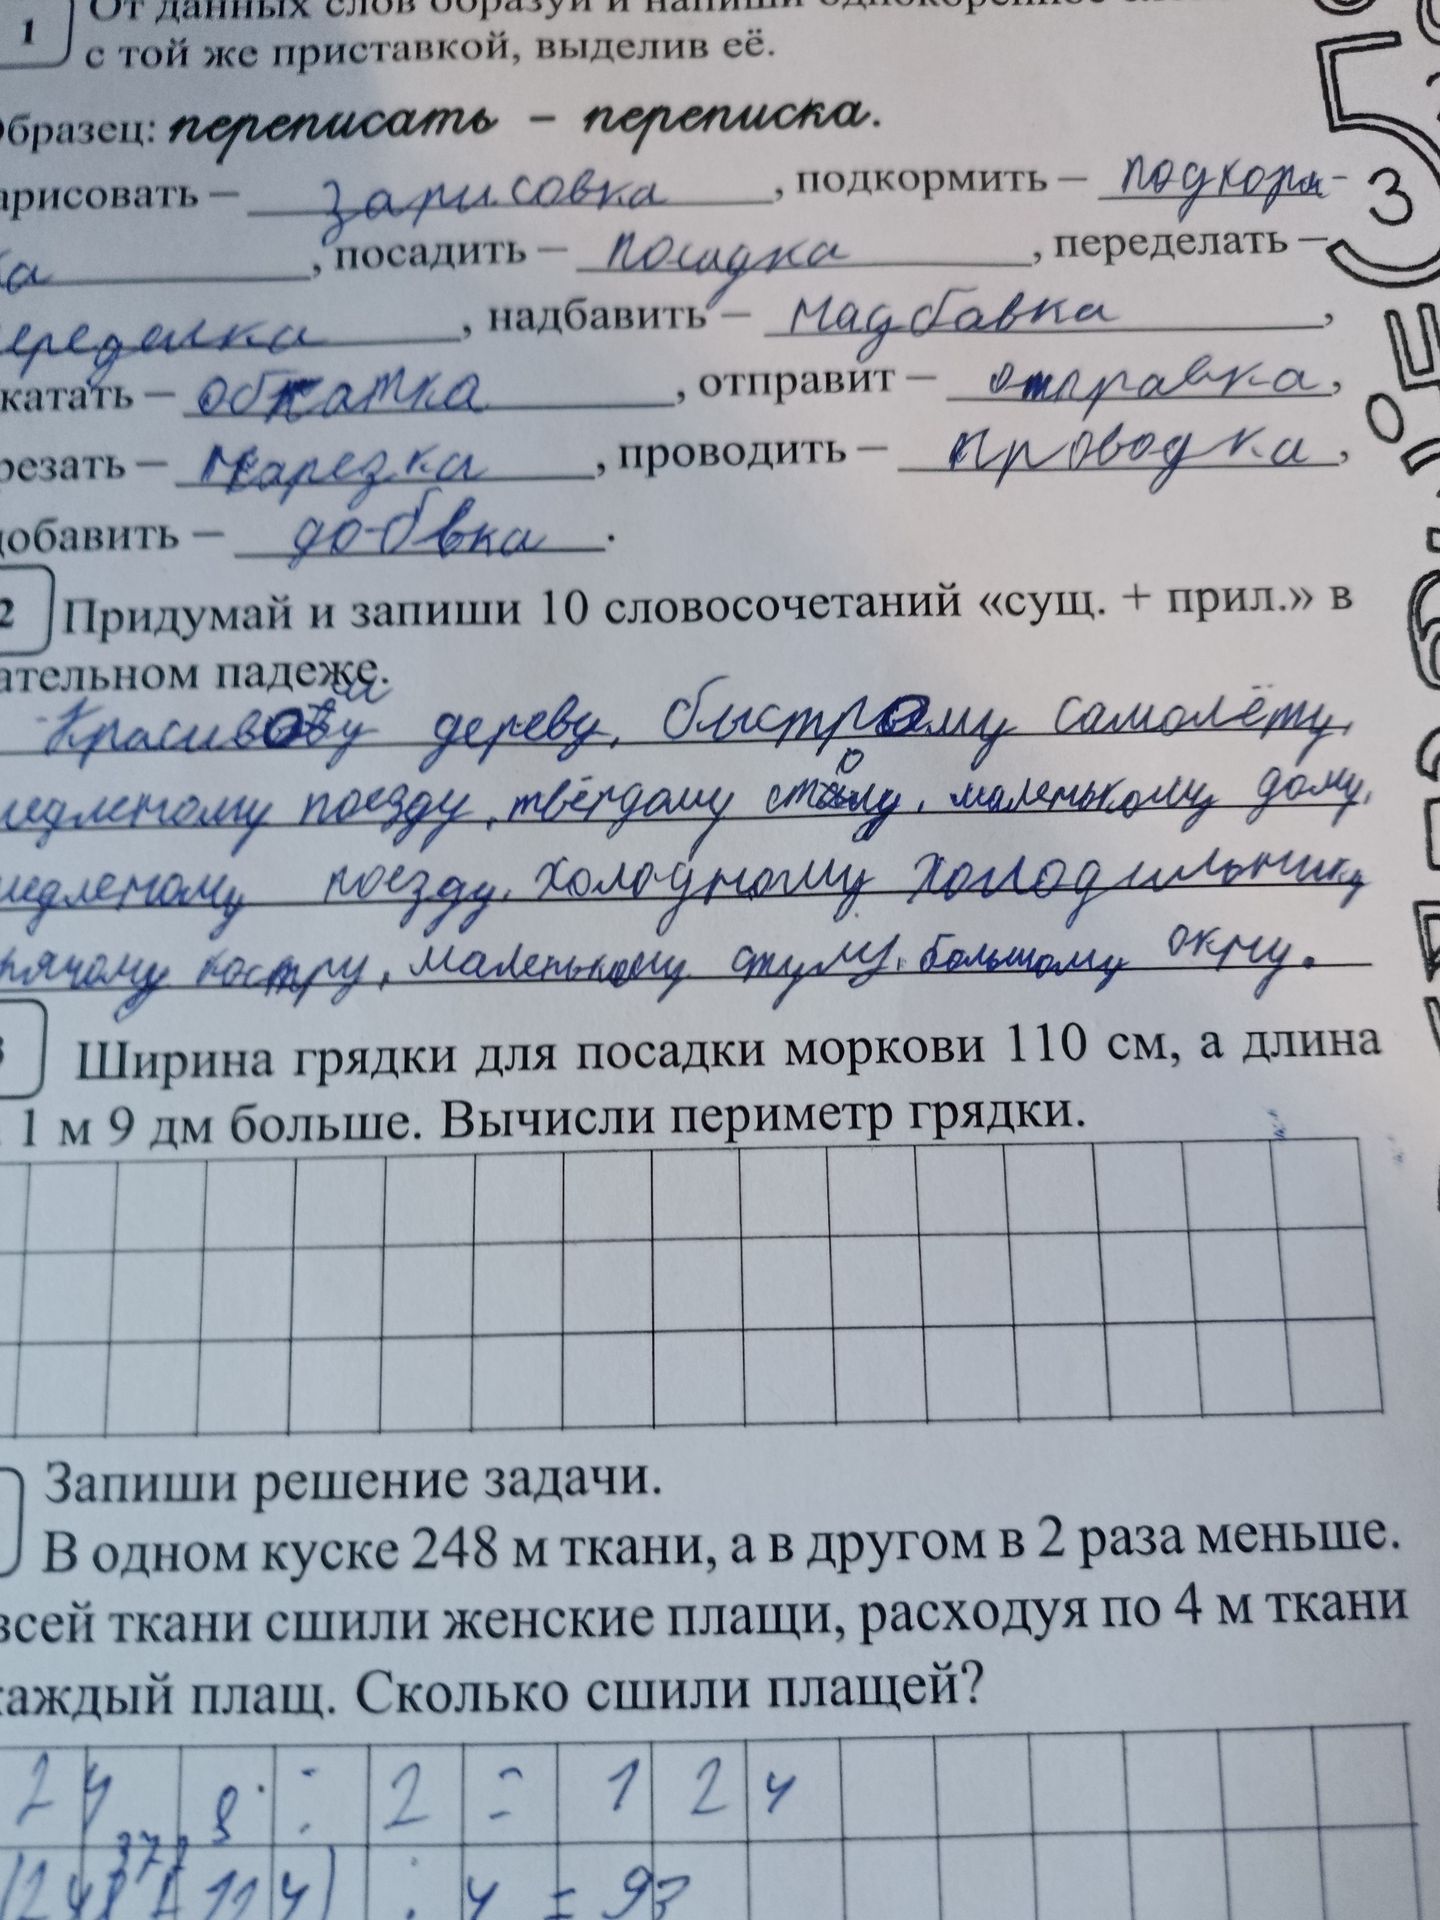 1 От данных слов образуй и напиши однокоренное
с той же приставкой, выделив её.
Образец: переписать – переписка.
арисовать – зарисовка, подкормить – подкорм-
ка, посадить – посадка, переделать –
переделка, надбавить – надбавка,
катать – обкатка, отправит – отправка,
резать – нарезка, проводить – проводка,
добавить – до-бвка.
2 Придумай и запиши 10 словосочетаний «сущ. + прил.» в
ательном падеже.
дереву, быстрому самолёту,
медленому поезду, твёрдому столу, маленькому дому,
медленому поезду, холодному холодильнику
рячому костру, маленькому стулу, большому окну.
3 Ширина грядки для посадки моркови 110 см, а длина
1 м 9 дм больше. Вычисли периметр грядки.
Запиши решение задачи.
В одном куске 248 м ткани, а в другом в 2 раза меньше.
всей ткани сшили женские плащи, расходуя по 4 м ткани
каждый плащ. Сколько сшили плащей?
248 : 2 = 124
: 4 = 93
53
3